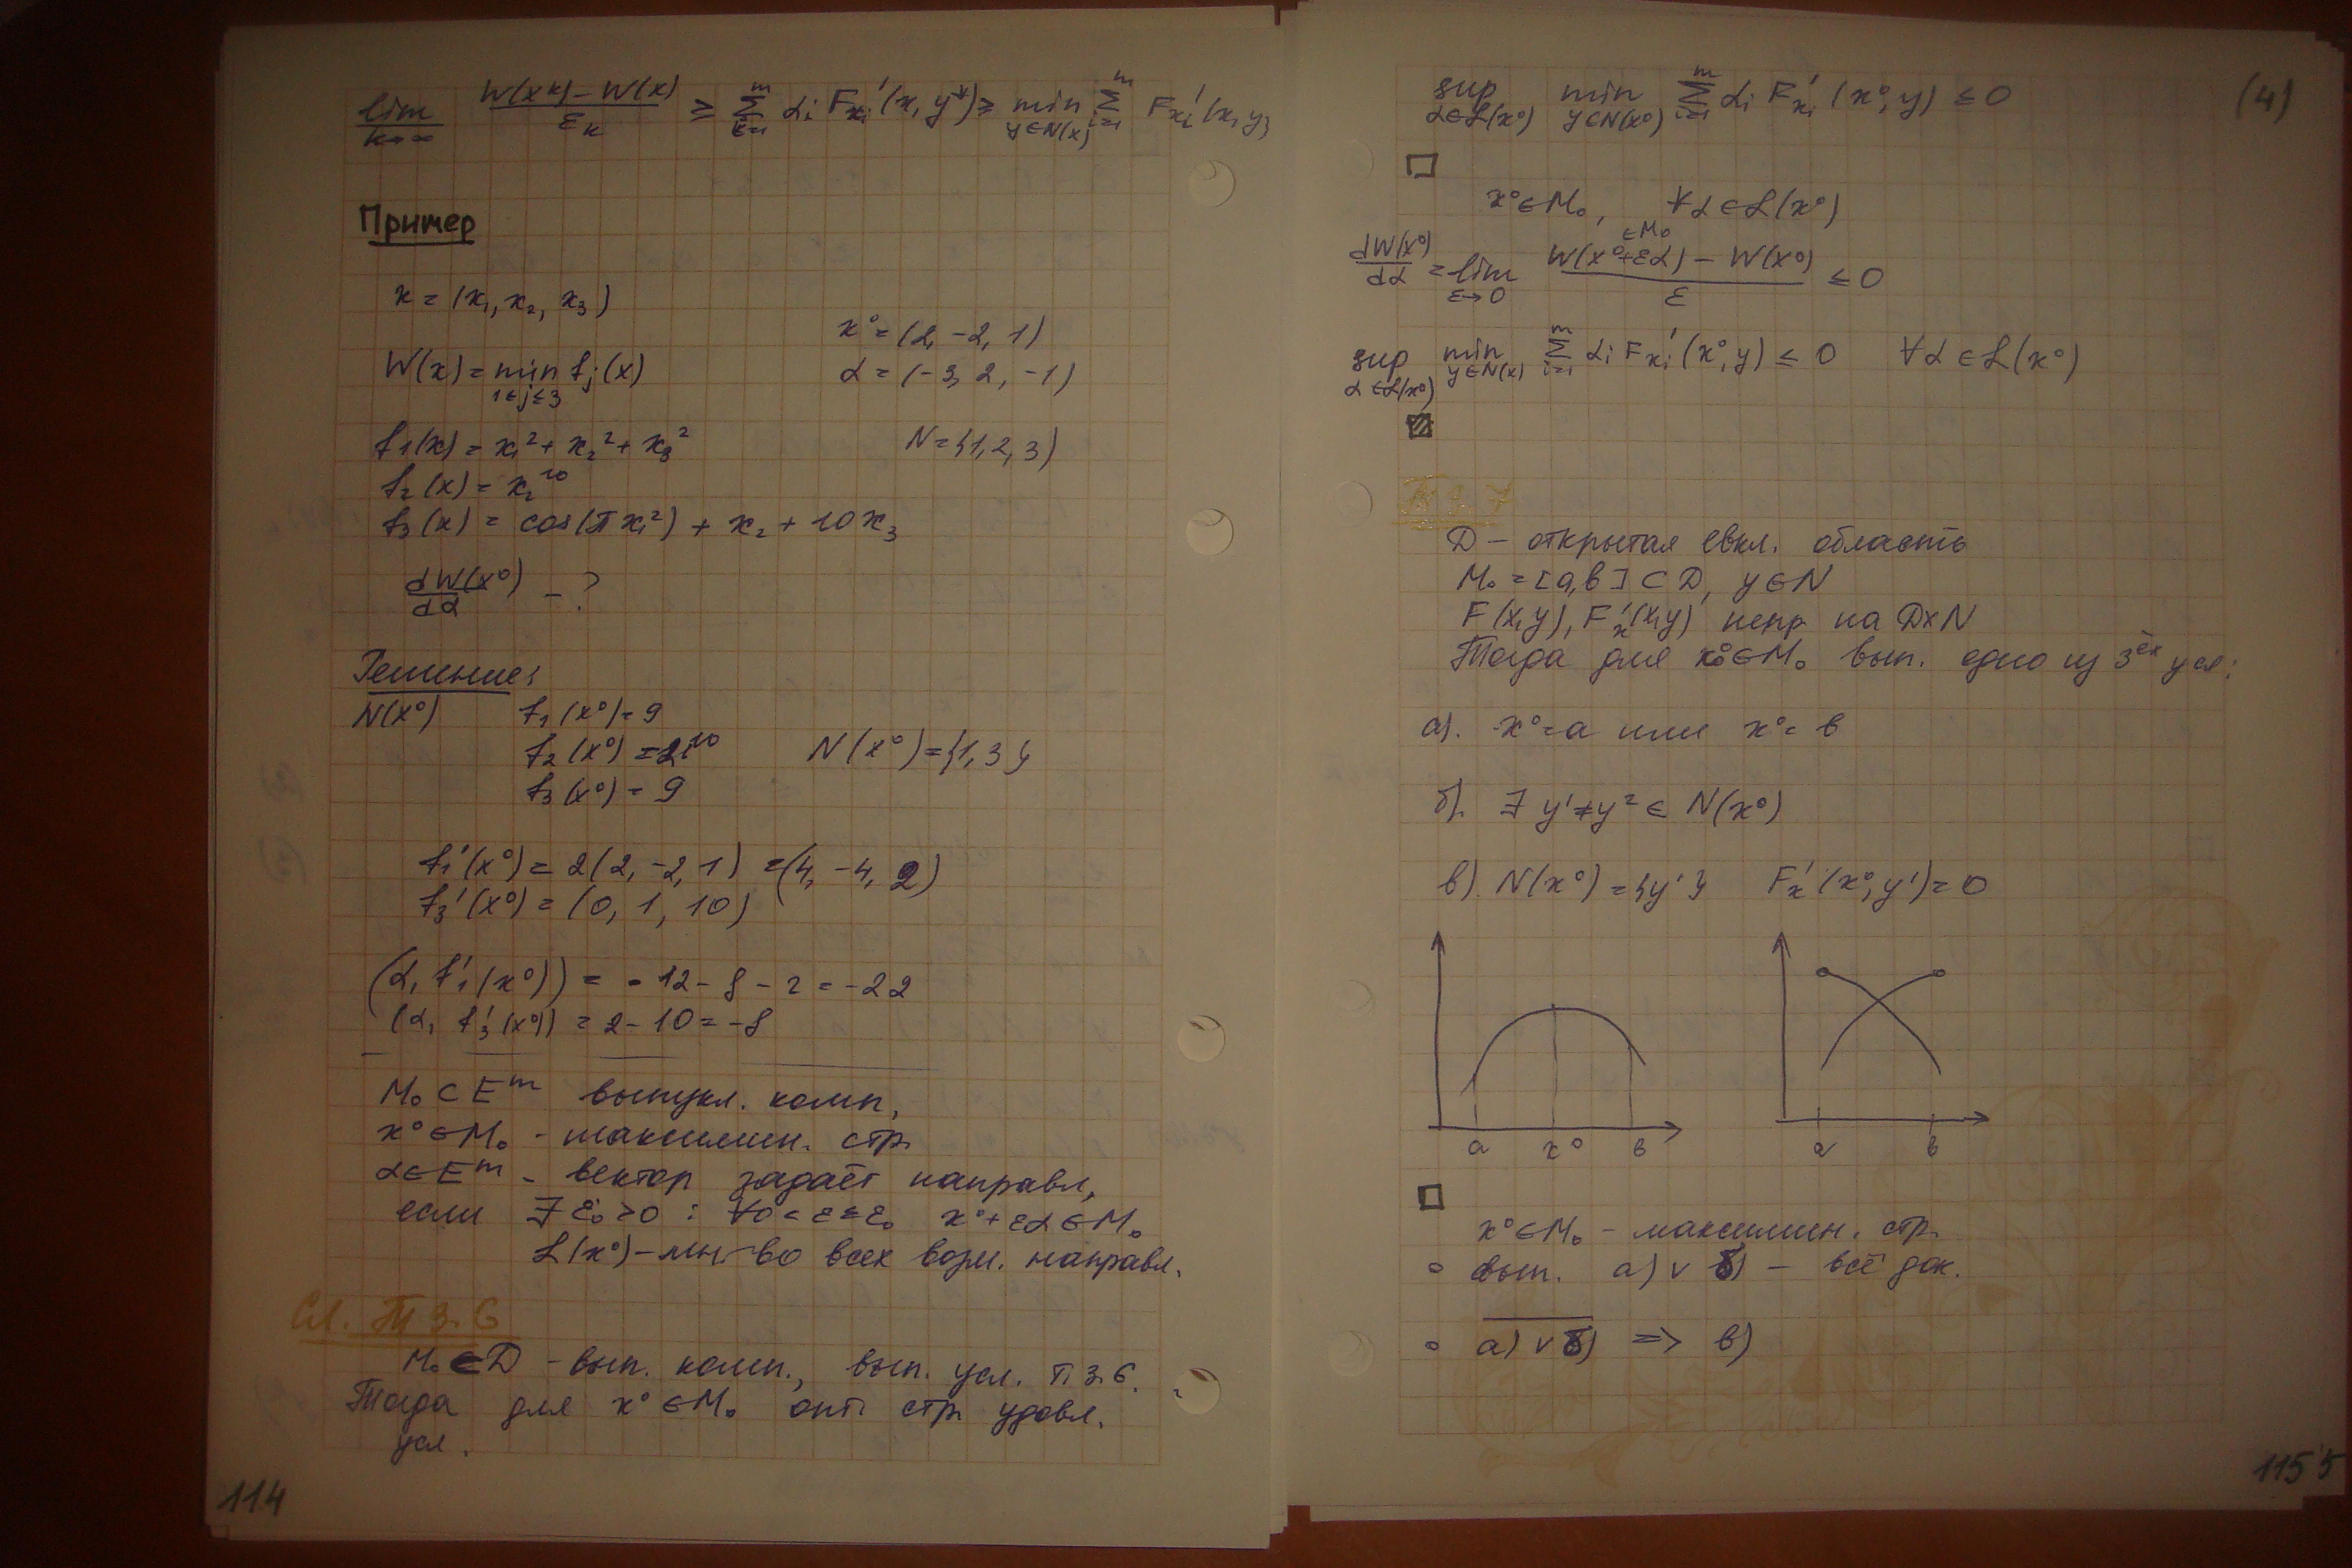 lim k→∞ (W(xᵏ) − W(x))/εₖ ≥ Σ_{k=1}^m αᵢ F'ₓᵢ(x, y*) ≥ min_{y∈N(x)} Σ_{i=1}^m F'ₓᵢ(x, y)
Пример
x = (x₁, x₂, x₃)
x⁰ = (2, −2, 1)
W(x) = min_{1≤j≤3} fⱼ(x)
α = (−3, 2, −1)
f₁(x) = x₁² + x₂² + x₃²
N = {1, 2, 3}
f₂(x) = x₂¹⁰
f₃(x) = cos(πx₁²) + x₂ + 10x₃
dW(x⁰)/dα − ?
Решение:
N(x⁰) f₁(x⁰) = 9
f₂(x⁰) = 2¹⁰ N(x⁰) = {1, 3}
f₃(x⁰) = 9
f₁'(x⁰) = 2(2, −2, 1) = (4, −4, 2)
f₃'(x⁰) = (0, 1, 10)
(α, f'₁(x⁰)) = −12 − 8 − 2 = −22
(α, f'₃(x⁰)) = 2 − 10 = −8
M₀ ⊂ Eᵐ выпукл. комп,
x⁰ ∈ M₀ - максимин. стр.
α ∈ Eᵐ - вектор задаёт направл,
если ∃ ε₀ > 0 : ∀ 0 < ε ≤ ε₀ x⁰ + εα ∈ M₀
ℒ(x⁰) − мн-во всех возм. направл.
Сл. Т 3.6
M₀ ⊂ D − вып. комп., вып. усл. т. 3.6.
Тогда для x⁰ ∈ M₀ опт. стр. удовл.
усл.
114
sup_{α∈ℒ(x⁰)} min_{y∈N(x⁰)} Σ_{i=1}^m αᵢ F'ₓᵢ(x⁰, y) ≤ 0 (4)
□
x⁰ ∈ M₀, ∀α ∈ ℒ(x⁰)
∈ M₀
dW(x⁰)/dα = lim_{ε→0} (W(x⁰+εα) − W(x⁰))/ε ≤ 0
sup_{α∈ℒ(x⁰)} min_{y∈N(x)} Σ_{i=1}^m αᵢ F'ₓᵢ(x⁰, y) ≤ 0 ∀α ∈ ℒ(x⁰)
Т 3.7
D − открытая евкл. область
M₀ = [a, b] ⊂ D, y ∈ N
F(x, y), F'ₓ(x, y) непр на D×N
Тогда для x⁰ ∈ M₀ вып. одно из 3ёх усл:
а). x⁰ = a или x⁰ = b
б). ∃ y¹ ≠ y² ∈ N(x⁰)
в). N(x⁰) = {y'} F'ₓ(x⁰, y') = 0
a x⁰ b
a b
□
x⁰ ∈ M₀ − максимин. стр.
∘ вып. а) ∨ б) − всё док.
∘ а) ∨ б) => в)
115